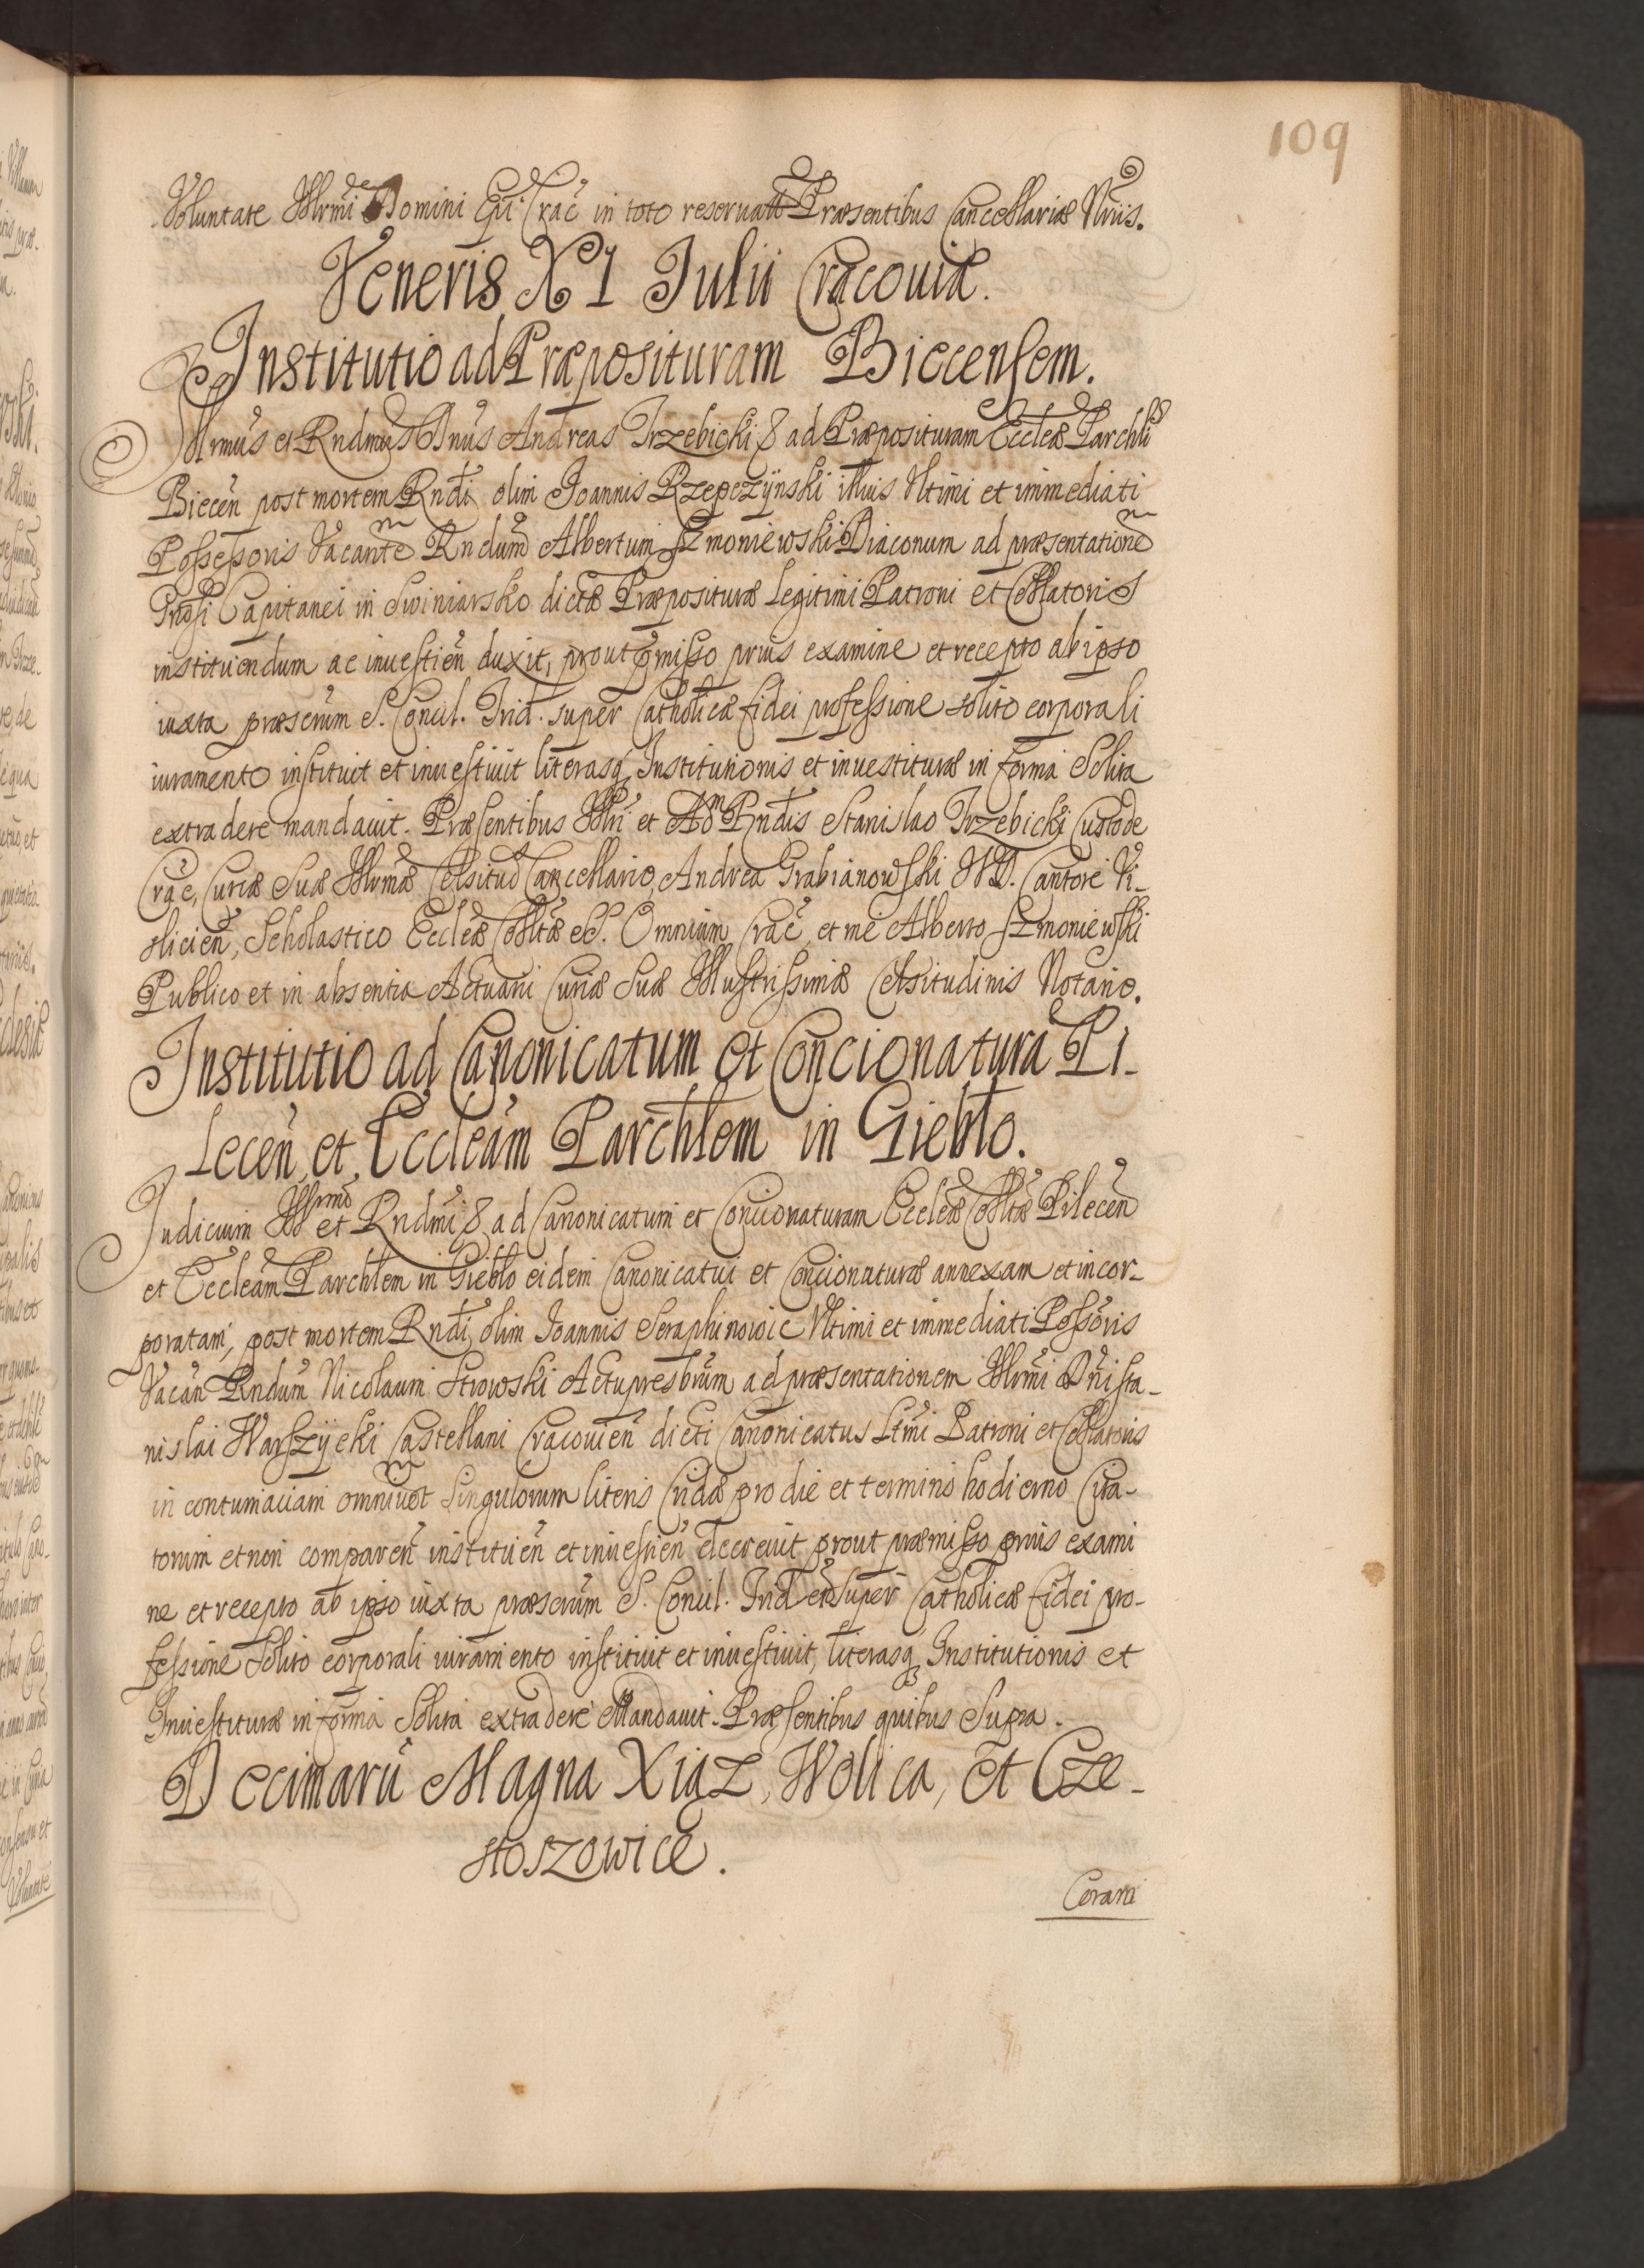 109
Voluntate Illrmi Domini Epi Crac in toto reseruata Præsentibus Cancellariæ Nriis.
Veneris XI Julii Cracouiæ.
Institutio ad Præposituram Bieccensem.
Illrmus et Rndmus Dnus Andreas Trzebicki & ad Præposituram Eccleæ Parchlis
Biecen post mortem Rndi olim Joannis Rzepczÿnski illius Vltimi et immediati
Possessoris Vacantem Rndum Albertum Szmoniewski Diaconum ad præsentationem
Gnosi Capitanei in Swiniarsko dictæ Præposituræ Legitimi Patroni et Collatoris
instituendum ac inuestien duxit, prout præmisso prius examine et recepto ab ipso
iuxta præscrum S. Concil. Trid. super Catholicæ fidei professione solito corporali
iuramento instituit et inuestiuit literasq Institutionis et inuestituræ in forma Solita
extradere mandauit. Præsentibus Illri et Adm Rndis Stanislao Trzebicki Custode
Crac, Curiæ Suæ Illrmæ Celsitud Cancellario, Andrea Grabianowski IVD. Cantore Vi-
slicien, Scholastico Eccleæ Colltæ SS. Omnium Crac et me Alberto Szmoniewski
Publico et in absentia Actuarii Curiæ Suæ Illustrissimæ Celsitudinis Notario.
Institutio ad Canonicatum et Concionatura Pi-
lecen et Eccleam Parchlem in Giebło.
Judicium Illrmi et Rndmi & ad Canonicatum et Concionaturam Eccleæ Colltæ Pilecen
et Eccleam Parchlem in Giebło eidem Canonicatui et Concionaturæ annexam et incor-
poratam, post mortem Rndi olim Joannis Seraphinowic Vltimi et immediati Possoris
Vacan Rndum Nicolaum Strowski Actupresbrum ad præsentationem Illrmi Dni Sta-
nislai Warszÿcki Castellani Cracouien dicti Canonicatus Ltmi Patroni et Collatoris
in contumaciam omnium et Singulorum literis Cridæ pro die et termino hodierno Cita-
torum et non comparen instituen et inuestien decreuit prout præmisso prius exami
ne et recepto ab ipso iuxta præscrum S. Concil. Trid super Catholicæ fidei pro-
fessione Solito corporali iuramento instituit et inuestiuit, literasq Institutionis et
Inuestituræ in forma Solita extradere Mandauit. Præsentibus quibus Supra.
Decimaru Magna Xiąz, Wolica, et Cze-
stoszowice.
Coram